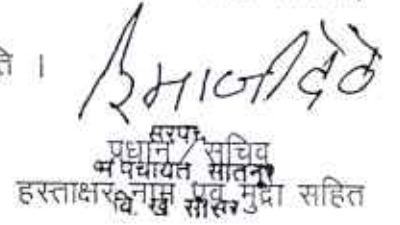 ते ।
सरपंच
प्रधान / सचिव
पंचायत सातनूर
हस्ताक्षर नाम एवं मुद्रा सहित
वि. ख. सौसर